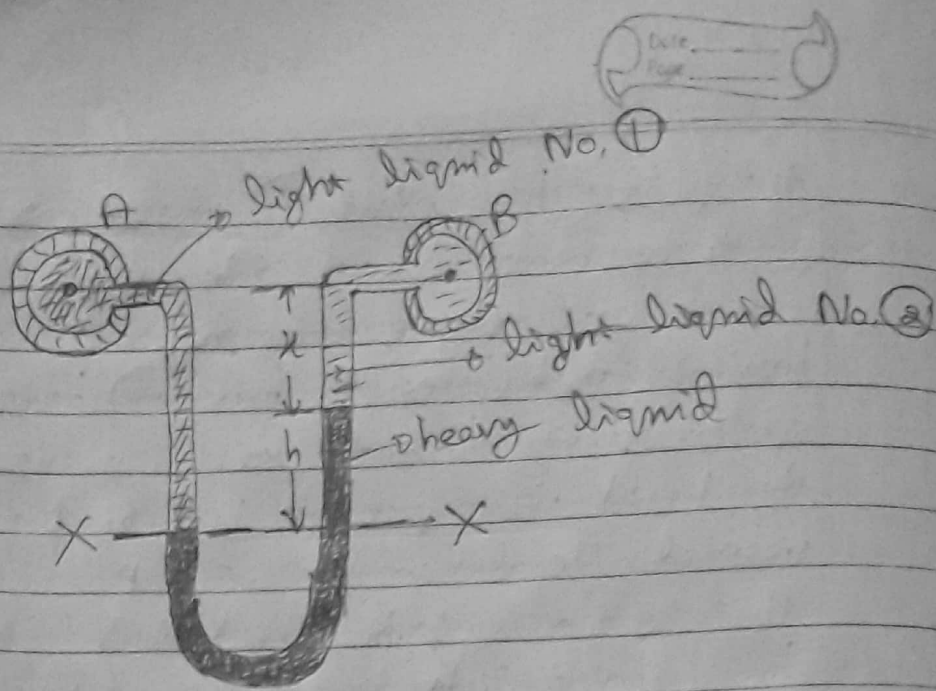 Date
Page
light liquid No. ①
A
B
x
light liquid No. ②
h
heavy liquid
X
X